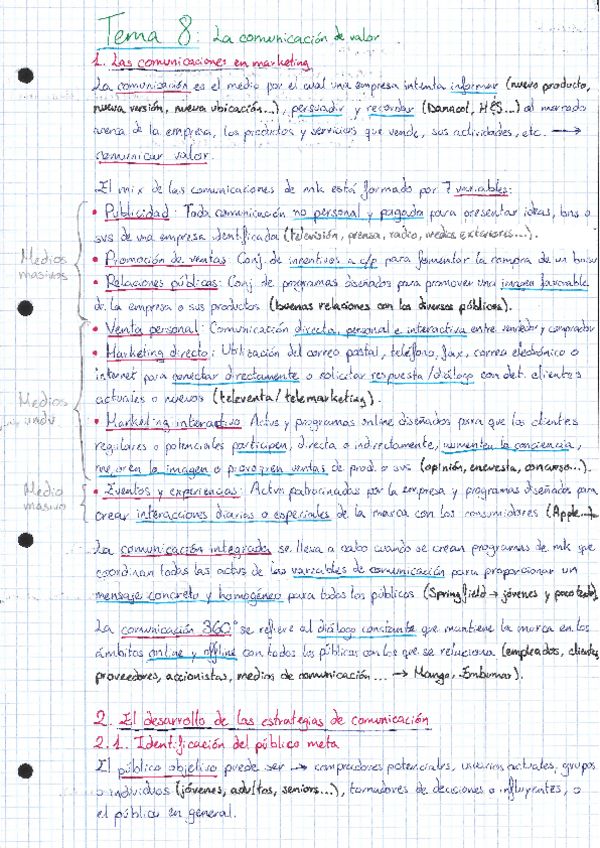 Tema 8: La comunicación de valor
1. Las comunicaciones en marketing
La comunicación es el medio por el cual una empresa intenta informar (nuevo producto,
nueva versión, nueva ubicación...), persuadir y recordar (Danacol, H&S...) al mercado
acerca de la empresa, los productos y servicios que vende, sus actividades, etc. →
comunicar valor.
El mix de las comunicaciones de mk está formado por 7 variables:
• Publicidad: Toda comunicación no personal y pagada para presentar ideas, bns o
svs de una empresa identificada (televisión, prensa, radio, medios exteriores...).
Medios
masivos
• Promoción de ventas: Conj. de incentivos a c/p para fomentar la compra de un bn/sv
• Relaciones públicas: Conj. de programas diseñados para promover una imagen favorable
de la empresa o sus productos (buenas relaciones con los diversos públicos).
• Venta personal: Comunicación directa, personal e interactiva entre vendedor y comprador
• Marketing directo: Utilización del correo postal, teléfono, fax, correo electrónico o
internet para conectar directamente o solicitar respuesta/diálogo con det. clientes
actuales o nuevos (televenta/telemarketing).
Medios
indv.
• Marketing interactivo: Actvs y programas online diseñados para que los clientes
regulares o potenciales participen, directa o indirectamente, aumenten la conciencia,
mejoren la imagen o provoquen ventas de prod. o svs (opinión, encuesta, concurso...).
Medio
masivo
• Eventos y experiencias: Actvs patrocinadas por la empresa y programas diseñados para
crear interacciones diarias o especiales de la marca con los consumidores (Apple...)
La comunicación integrada se lleva a cabo cuando se crean programas de mk que
coordinan todas las actvs de las variables de comunicación para proporcionar un
mensaje concreto y homogéneo para todos los públicos (Springfield → jóvenes y poco texto).
La comunicación 360° se refiere al diálogo constante que mantiene la marca en los
ámbitos online y offline con todos los públicos con los que se relaciona (empleados, clientes,
proveedores, accionistas, medios de comunicación... → Mango, Embumas).
2. El desarrollo de las estrategias de comunicación
2.1. Identificación del público meta
El público objetivo puede ser → compradores potenciales, usuarios actuales, grupos
o individuos (jóvenes, adultos, seniors...), tomadores de decisiones o influyentes, o
el público en general.